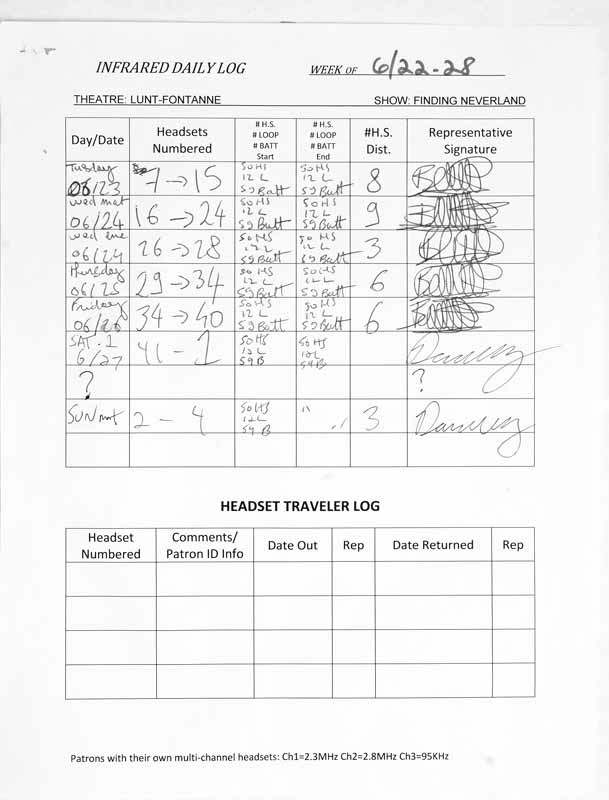 INFRARED DAILY LOG WEEK OF 6/22-28
THEATRE: LUNT-FONTANNE SHOW: FINDING NEVERLAND
Day/Date Headsets Numbered # H.S. # LOOP # BATT Start # H.S. # LOOP # BATT End #H.S. Dist. Representative Signature
Tuesday 06/23 7→15 50 HS 12 L 59 Batt 50 HS 12 L 59 Batt 8
wed mat 06/24 16→24 50 HS 12 L 59 Batt 50 HS 12 L 59 Batt 9
wed eve 06/24 26→28 50 HS 12 L 59 Batt 50 HS 12 L 59 Batt 3
Thursday 06/25 29→34 50 HS 12 L 59 Batt 50 HS 12 L 59 Batt 6
Friday 06/26 34→40 50 HS 12 L 59 Batt 50 HS 12 L 59 Batt 6
SAT. 1 6/27 41 - 1 50 HS 12L 59 B 50 HS 12L 59 B
? ?
SUN mat 2 - 4 50 HS 12L 59 B " " 3
HEADSET TRAVELER LOG
Headset Numbered Comments/ Patron ID Info Date Out Rep Date Returned Rep
Patrons with their own multi-channel headsets: Ch1=2.3MHz Ch2=2.8MHz Ch3=95KHz